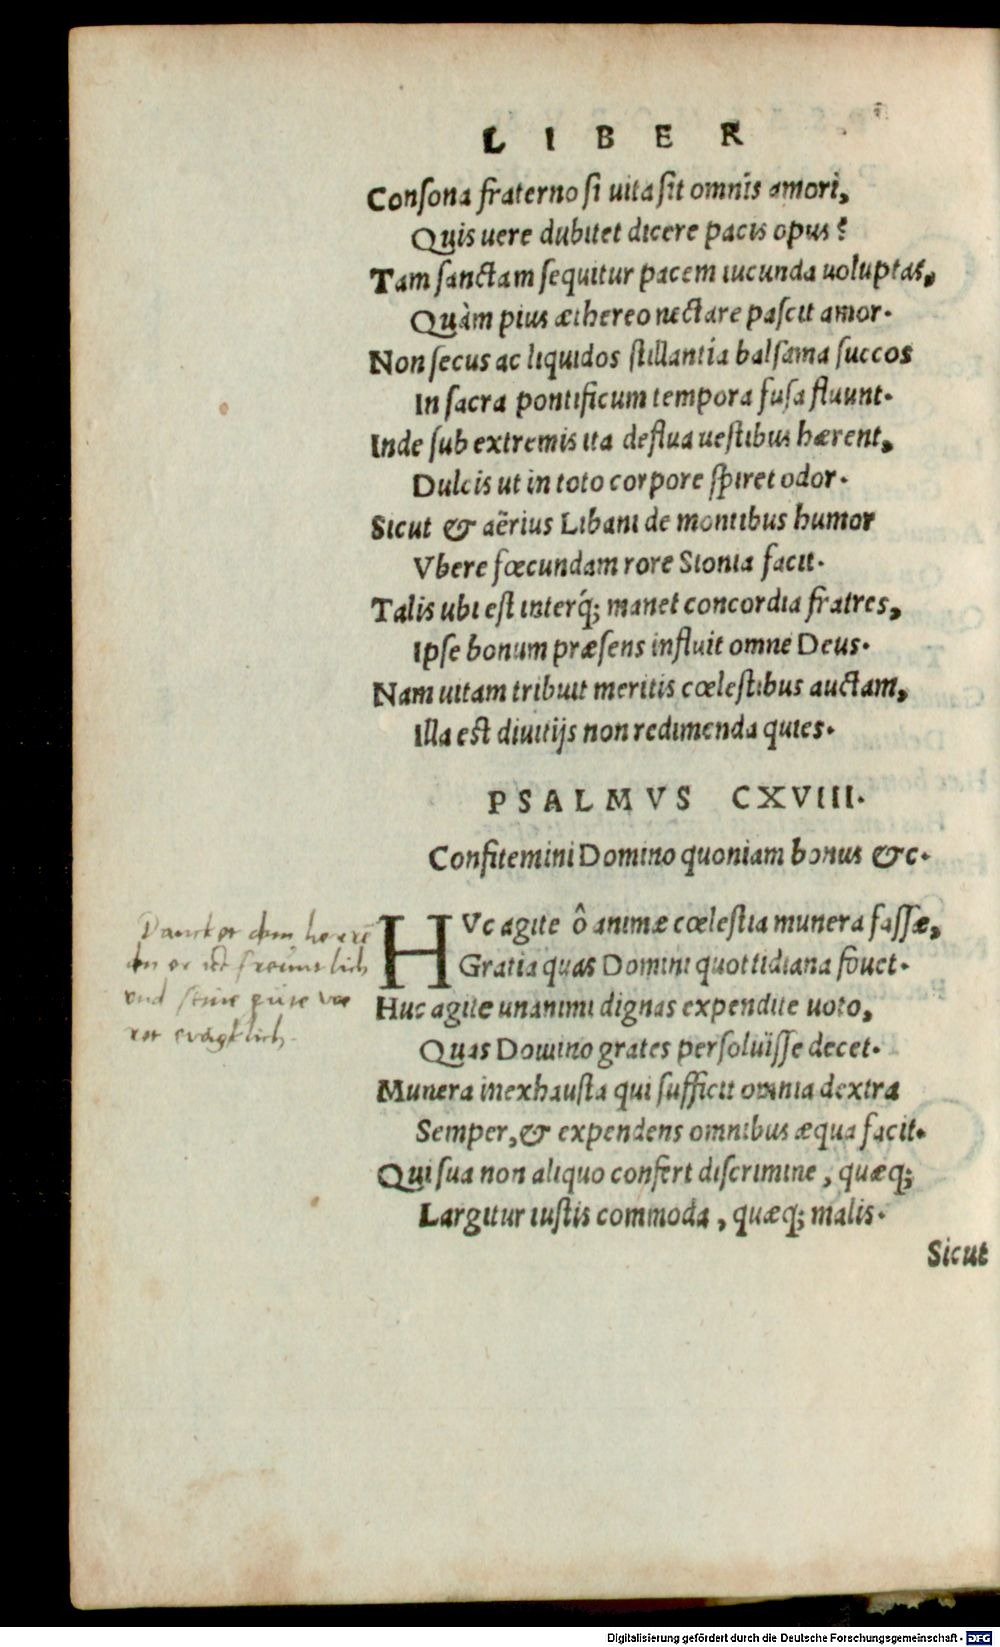 LIBER
Conſona fraterno ſi uita ſit omnis amori,
Quis uere dubitet dicere pacis opus?
Tam ſanctam ſequitur pacem iucunda uoluptas,
Quàm pius æthereo nectare paſcit amor.
Non ſecus ac liquidos ſtillantia balſama ſuccos
In ſacra pontificum tempora fuſa fluunt.
Inde ſub extremis ita deflua ueſtibus hærent,
Dulcis ut in toto corpore ſpiret odor.
Sicut & aërius Libani de montibus humor
Vbere fœcundam rore Sionia facit.
Talis ubi eſt interq́; manet concordia fratres,
Ipſe bonum præſens influit omne Deus.
Nam uitam tribuit meritis cœleſtibus auctam,
Illa eſt diuitijs non redimenda quies.
PSALMVS CXVIII.
Confitemini Domino quoniam bonus &c.
HVc agite ô animæ cœleſtia munera faſſæ,
Gratia quas Domini quottidiana fouet.
Huc agite unanimi dignas expendite uoto,
Quas Domino grates perſoluiſſe decet.
Munera inexhauſta qui ſufficit omnia dextra
Semper, & expendens omnibus æqua facit.
Qui ſua non aliquo confert diſcrimine, quæq;
Largitur iuſtis commoda, quæq; malis.
Sicut
Danket dem herrē
den er ist freuntlich
vnd seine güte we
ret ewigklich.
Digitalisierung gefördert durch die Deutsche Forschungsgemeinschaft - DFG